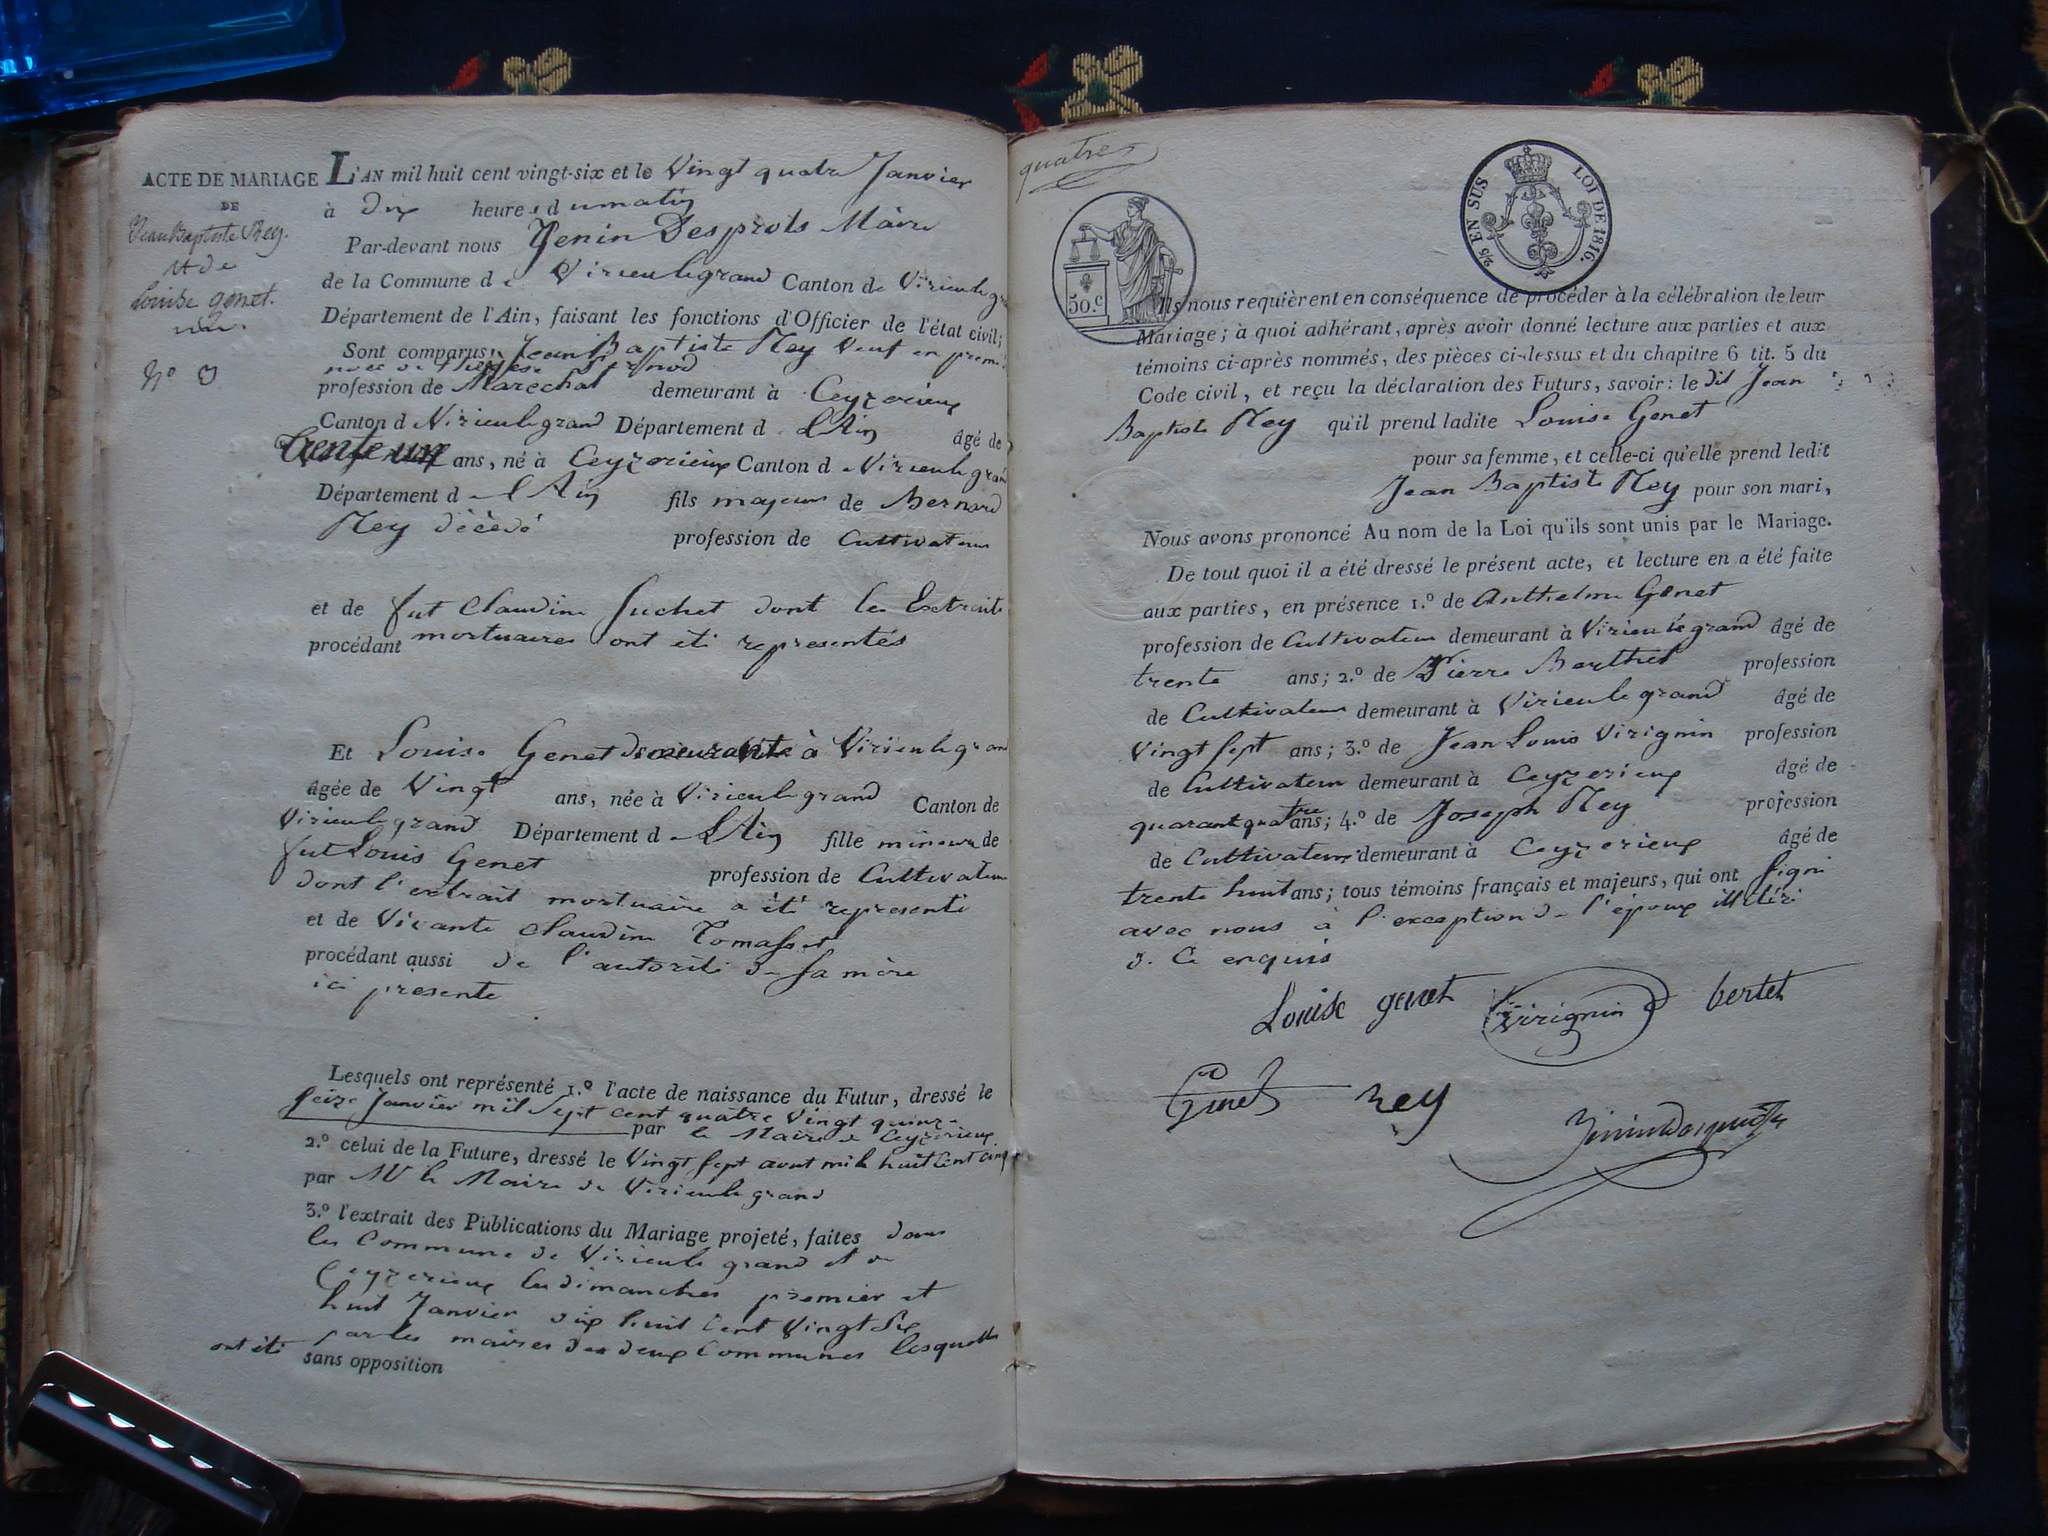 ACTE DE MARIAGE
DE
Jean Baptiste Rey.
et de
Louise genet.
N.º 3
L'AN mil huit cent vingt-six et le Vingt quatre Janvier
à dix heures du matin
Par-devant nous Jenin Desprots Maire
de la Commune de Virieu le grand Canton de Virieu le gra
Département de l'Ain, faisant les fonctions d'Officier de l'état civil;
Sont comparus, Jean Baptiste Rey Veuf en premi
profession de Marechal demeurant à Ceyzerieux
Canton de Virieu le grand Département de L'Ain âgé de
trente un ans, né à Ceyzerieux Canton de Virieu le grand
Département de l'Ain fils majeur de Bernard
Rey décédé profession de Cultivateur
et de fut Claudine Suchet dont les Extraits
procédant mortuaires ont été representés
Et Louise Genet demeurante à Virieu le gran
âgée de Vingt ans, née à Virieu le grand Canton de
Virieu le grand Département de L'Ain fille mineure de
fut Louis Genet profession de Cultivateur
dont l'extrait mortuaire a été representé
et de Vivante Claudine Tomasset
procédant aussi de l'autorité de sa mère
ici presente
Lesquels ont représenté 1.º l'acte de naissance du Futur, dressé le
seize Janvier mil Sept cent quatre Vingt quinze
par le Maire de Ceyzerieux
2.º celui de la Future, dressé le Vingt sept aout mil huit Cent cinq
par Mr le Maire de Virieu le grand
3.º l'extrait des Publications du Mariage projeté, faites dans
les Commune de Virieu le grand et de
Ceyzerieux les dimanches premier et
huit Janvier dix huit Cent Vingt Six
par les maires des deux Communes lesquelles
ont été sans opposition
quatre
50.c
2/5 EN SUS
LOI DE 1816.
Ils nous requièrent en conséquence de procéder à la célébration de leur
Mariage; à quoi adhérant, après avoir donné lecture aux parties et aux
témoins ci-après nommés, des pièces ci-dessus et du chapitre 6 tit. 5 du
Code civil, et reçu la déclaration des Futurs, savoir: le dit Jean
Baptiste Rey qu'il prend ladite Louise Genet
pour sa femme, et celle-ci qu'elle prend ledit
Jean Baptiste Rey pour son mari,
Nous avons prononcé Au nom de la Loi qu'ils sont unis par le Mariage.
De tout quoi il a été dressé le présent acte, et lecture en a été faite
aux parties, en présence 1.º de Anthelme Genet
profession de Cultivateur demeurant à Virieu le grand âgé de
trente ans; 2.º de Pierre Berthet profession
de Cultivateur demeurant à Virieu le grand âgé de
Vingt sept ans; 3.º de Jean Louis Virignin profession
de Cultivateur demeurant à Ceyzerieux âgé de
quarant quatre ans; 4.º de Joseph Rey profession
de Cultivateur demeurant à Ceyzerieux âgé de
trente huit ans; tous témoins français et majeurs, qui ont signé
avec nous à l'exception de l'époux illitéré
d. Ce enquis
Louise genet Virignin bertet
Genet Rey